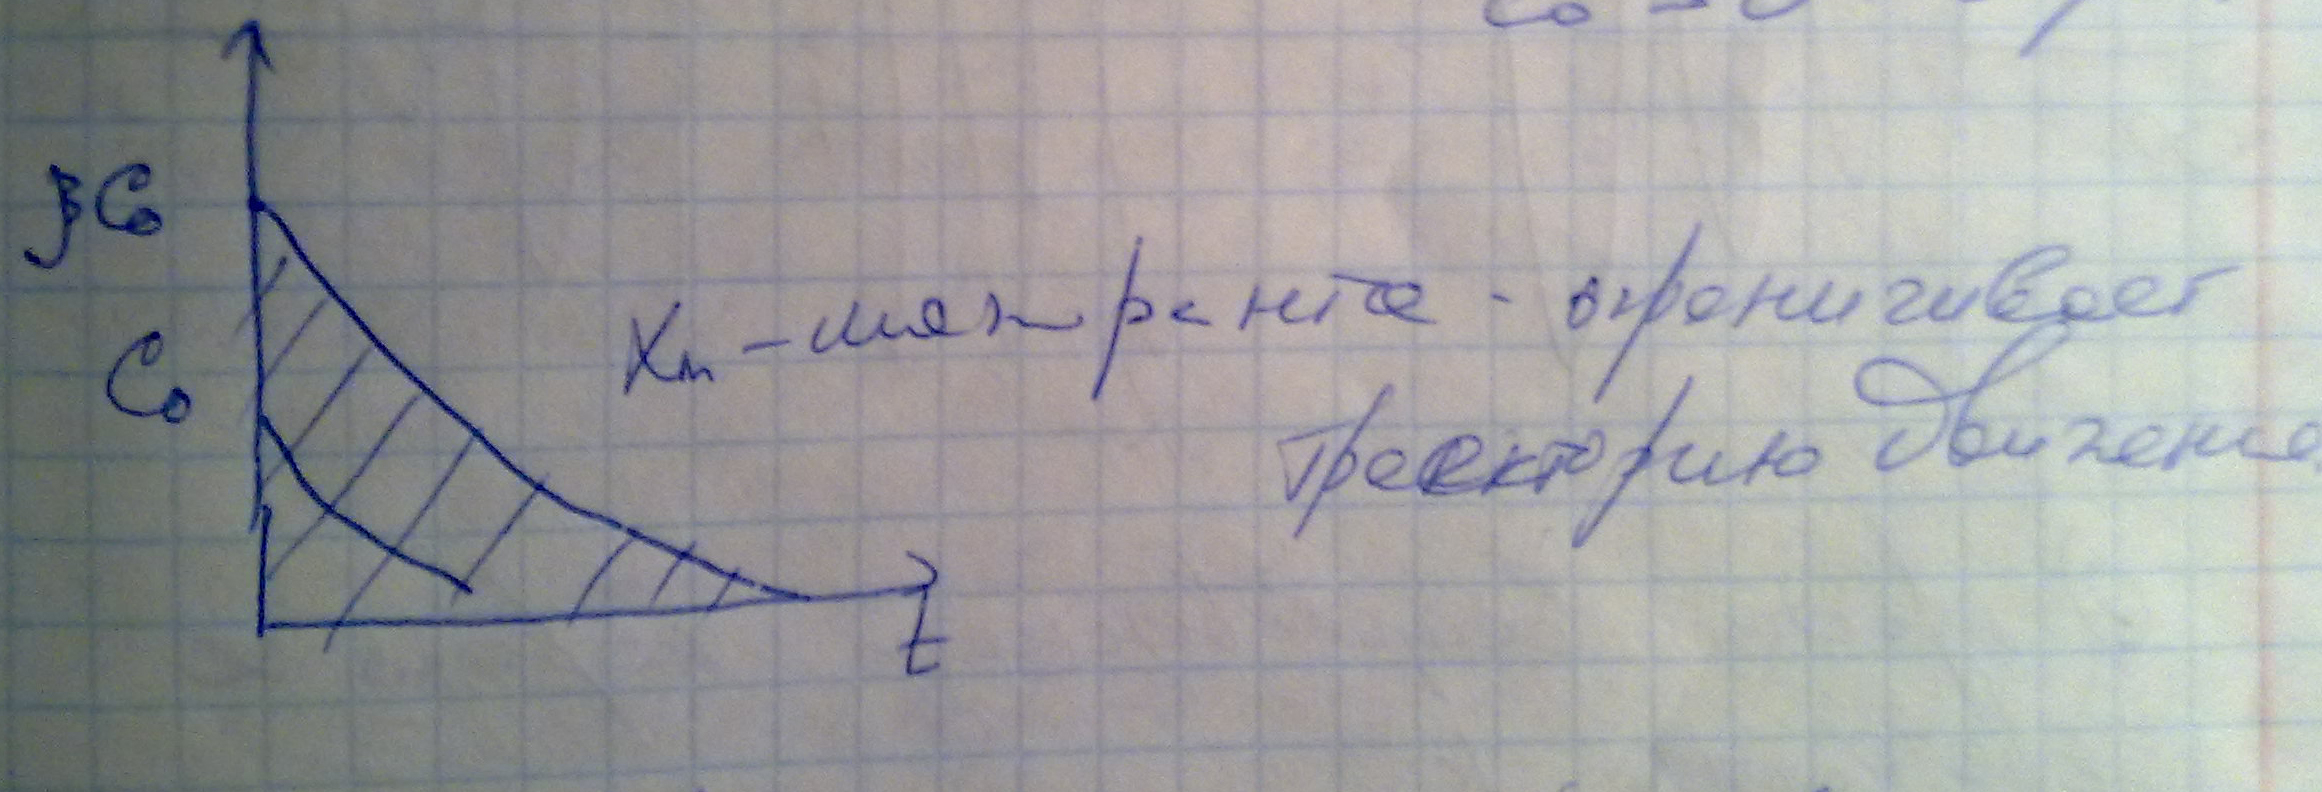 C₀
βC₀
C₀
Xm – мажранта - ограничивает
траекторию движения
t